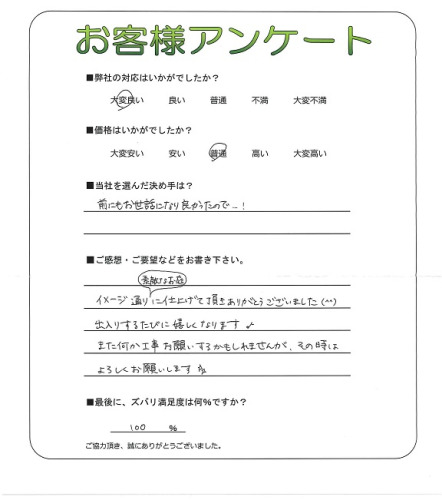 お客様アンケート
■弊社の対応はいかがでしたか？
大変良い 良い 普通 不満 大変不満
■価格はいかがでしたか？
大変安い 安い 普通 高い 大変高い
■当社を選んだ決め手は？
前にもお世話になり良かったので…！
■ご感想・ご要望などをお書き下さい。
素敵なお庭
イメージ通りに仕上げて頂きありがとうございました(^^)
出入りするたびに嬉しくなります♪
また何か工事お願いするかもしれませんが、その時は
よろしくお願いします
■最後に、ズバリ満足度は何%ですか？
100 %
ご協力頂き、誠にありがとうございました。